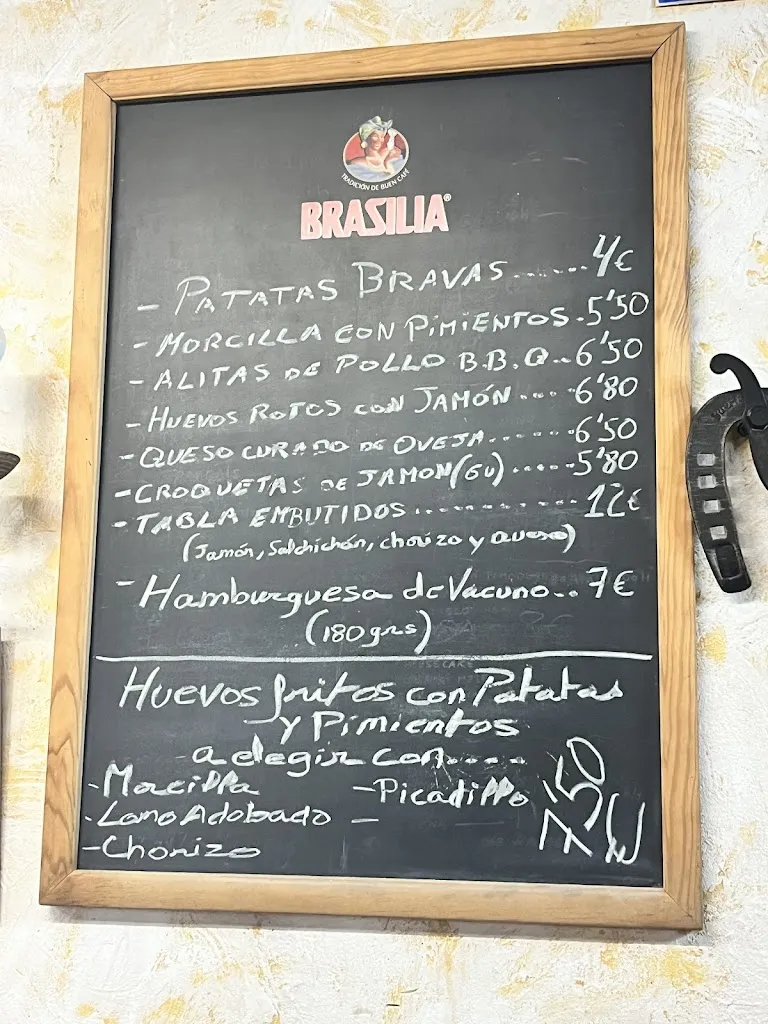 TRADICIÓN DE BUEN CAFÉ
BRASILIA®
- PATATAS BRAVAS......4€
- MORCILLA CON PIMIENTOS.5'50
- ALITAS DE POLLO B.B.Q..6'50
- HUEVOS ROTOS CON JAMÓN....6'80
- QUESO CURADO DE OVEJA......6'50
- CROQUETAS DE JAMON(6U).....5'80
- TABLA EMBUTIDOS..............12€
(Jamón, Salchichón, chorizo y queso)
- Hamburguesa de Vacuno..7€
(180grs)
HUEVOS fritos con Patatas
y Pimientos
a elegir con.....
- Morcilla - Picadillo
- Lomo Adobado -
- Chorizo
7'50€